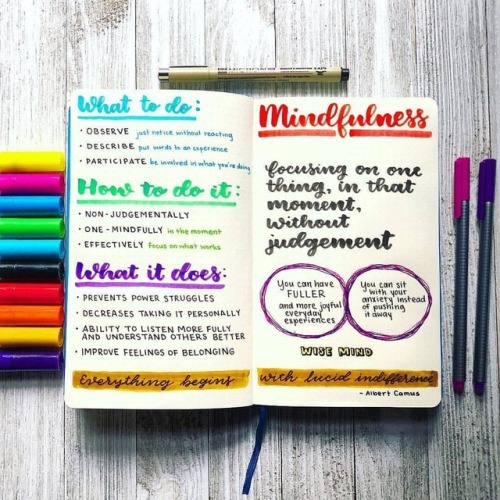 What to do:
• OBSERVE just notice without reacting
• DESCRIBE put words to an experience
• PARTICIPATE be involved in what you're doing
How to do it:
• NON-JUDGEMENTALLY
• ONE-MINDFULLY in the moment
• EFFECTIVELY focus on what works
What it does:
• PREVENTS POWER STRUGGLES
• DECREASES TAKING IT PERSONALLY
• ABILITY TO LISTEN MORE FULLY
AND UNDERSTAND OTHERS BETTER
• IMPROVE FEELINGS OF BELONGING
Everything begins
Mindfulness
focusing on one
thing, in that
moment,
without
judgement
You can have
FULLER
and more joyful
everyday
experiences
You can sit
with your
anxiety instead
of pushing
it away
WISE MIND
with lucid indifference
- Albert Camus